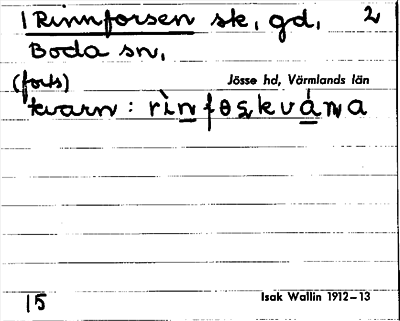 1 Rinnforsen sk, gd, 2
Boda sn,
(forts) Jösse hd, Värmlands län
kvarn : rìnfɵskvánа
15 Isak Wallin 1912–13